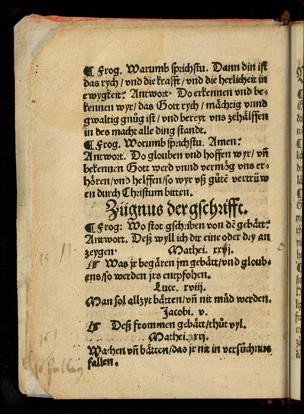 ¶ Frog. Warumb sprichstu. Dann din ist
das rych / vnd die krafft / vnd die herlicheit in
ewygkeit: Antwort. Do erkennen vnd be-
kennen wyr / das Gott rych / mächtig vnnd
gwaltig gnůg ist / vnd bereyt vns zehälffen
in des macht alle ding standt.
¶ Frog. Worumb sprichstu. Amen:
Antwort. Do glouben vnd hoffen wyr / vñ
bekennen Gott werd vnnd vermög vns er-
hören / vnd helffen / so wyr vß gůtē vertrüw
en durch Christum bitten.
Zügnus der gschrifft.
¶ Frog: Wo stot gschriben von dē gebätt:
Antwort. Deß wyll ich dir eine oder dry an
zeygen Mathei. xxj.
Was jr begären jm gebätt / vnd gloub-
ens / so werden jrs enpfohen.
Luce. xviij.
Man sol allzyt bätten / vñ nit můd werden.
Jacobi. v.
Deß frommen gebätt / thůt vyl.
Mathei. xxvj.
Wachen vñ bätten / das jr nit in versůchnus
fallen.